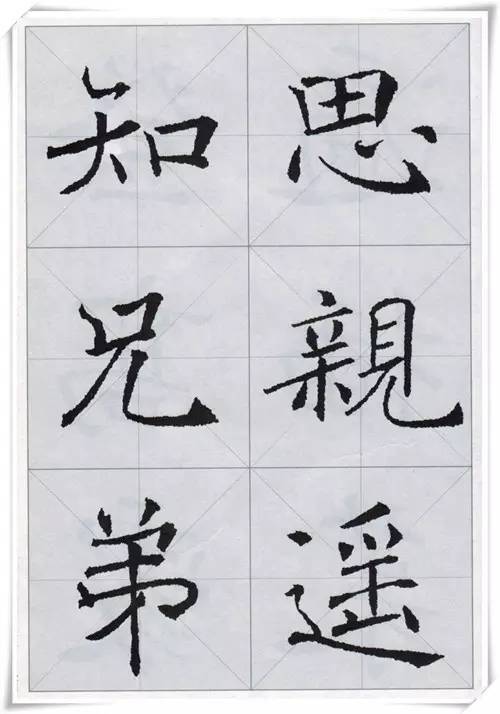 思親遥
知兄弟